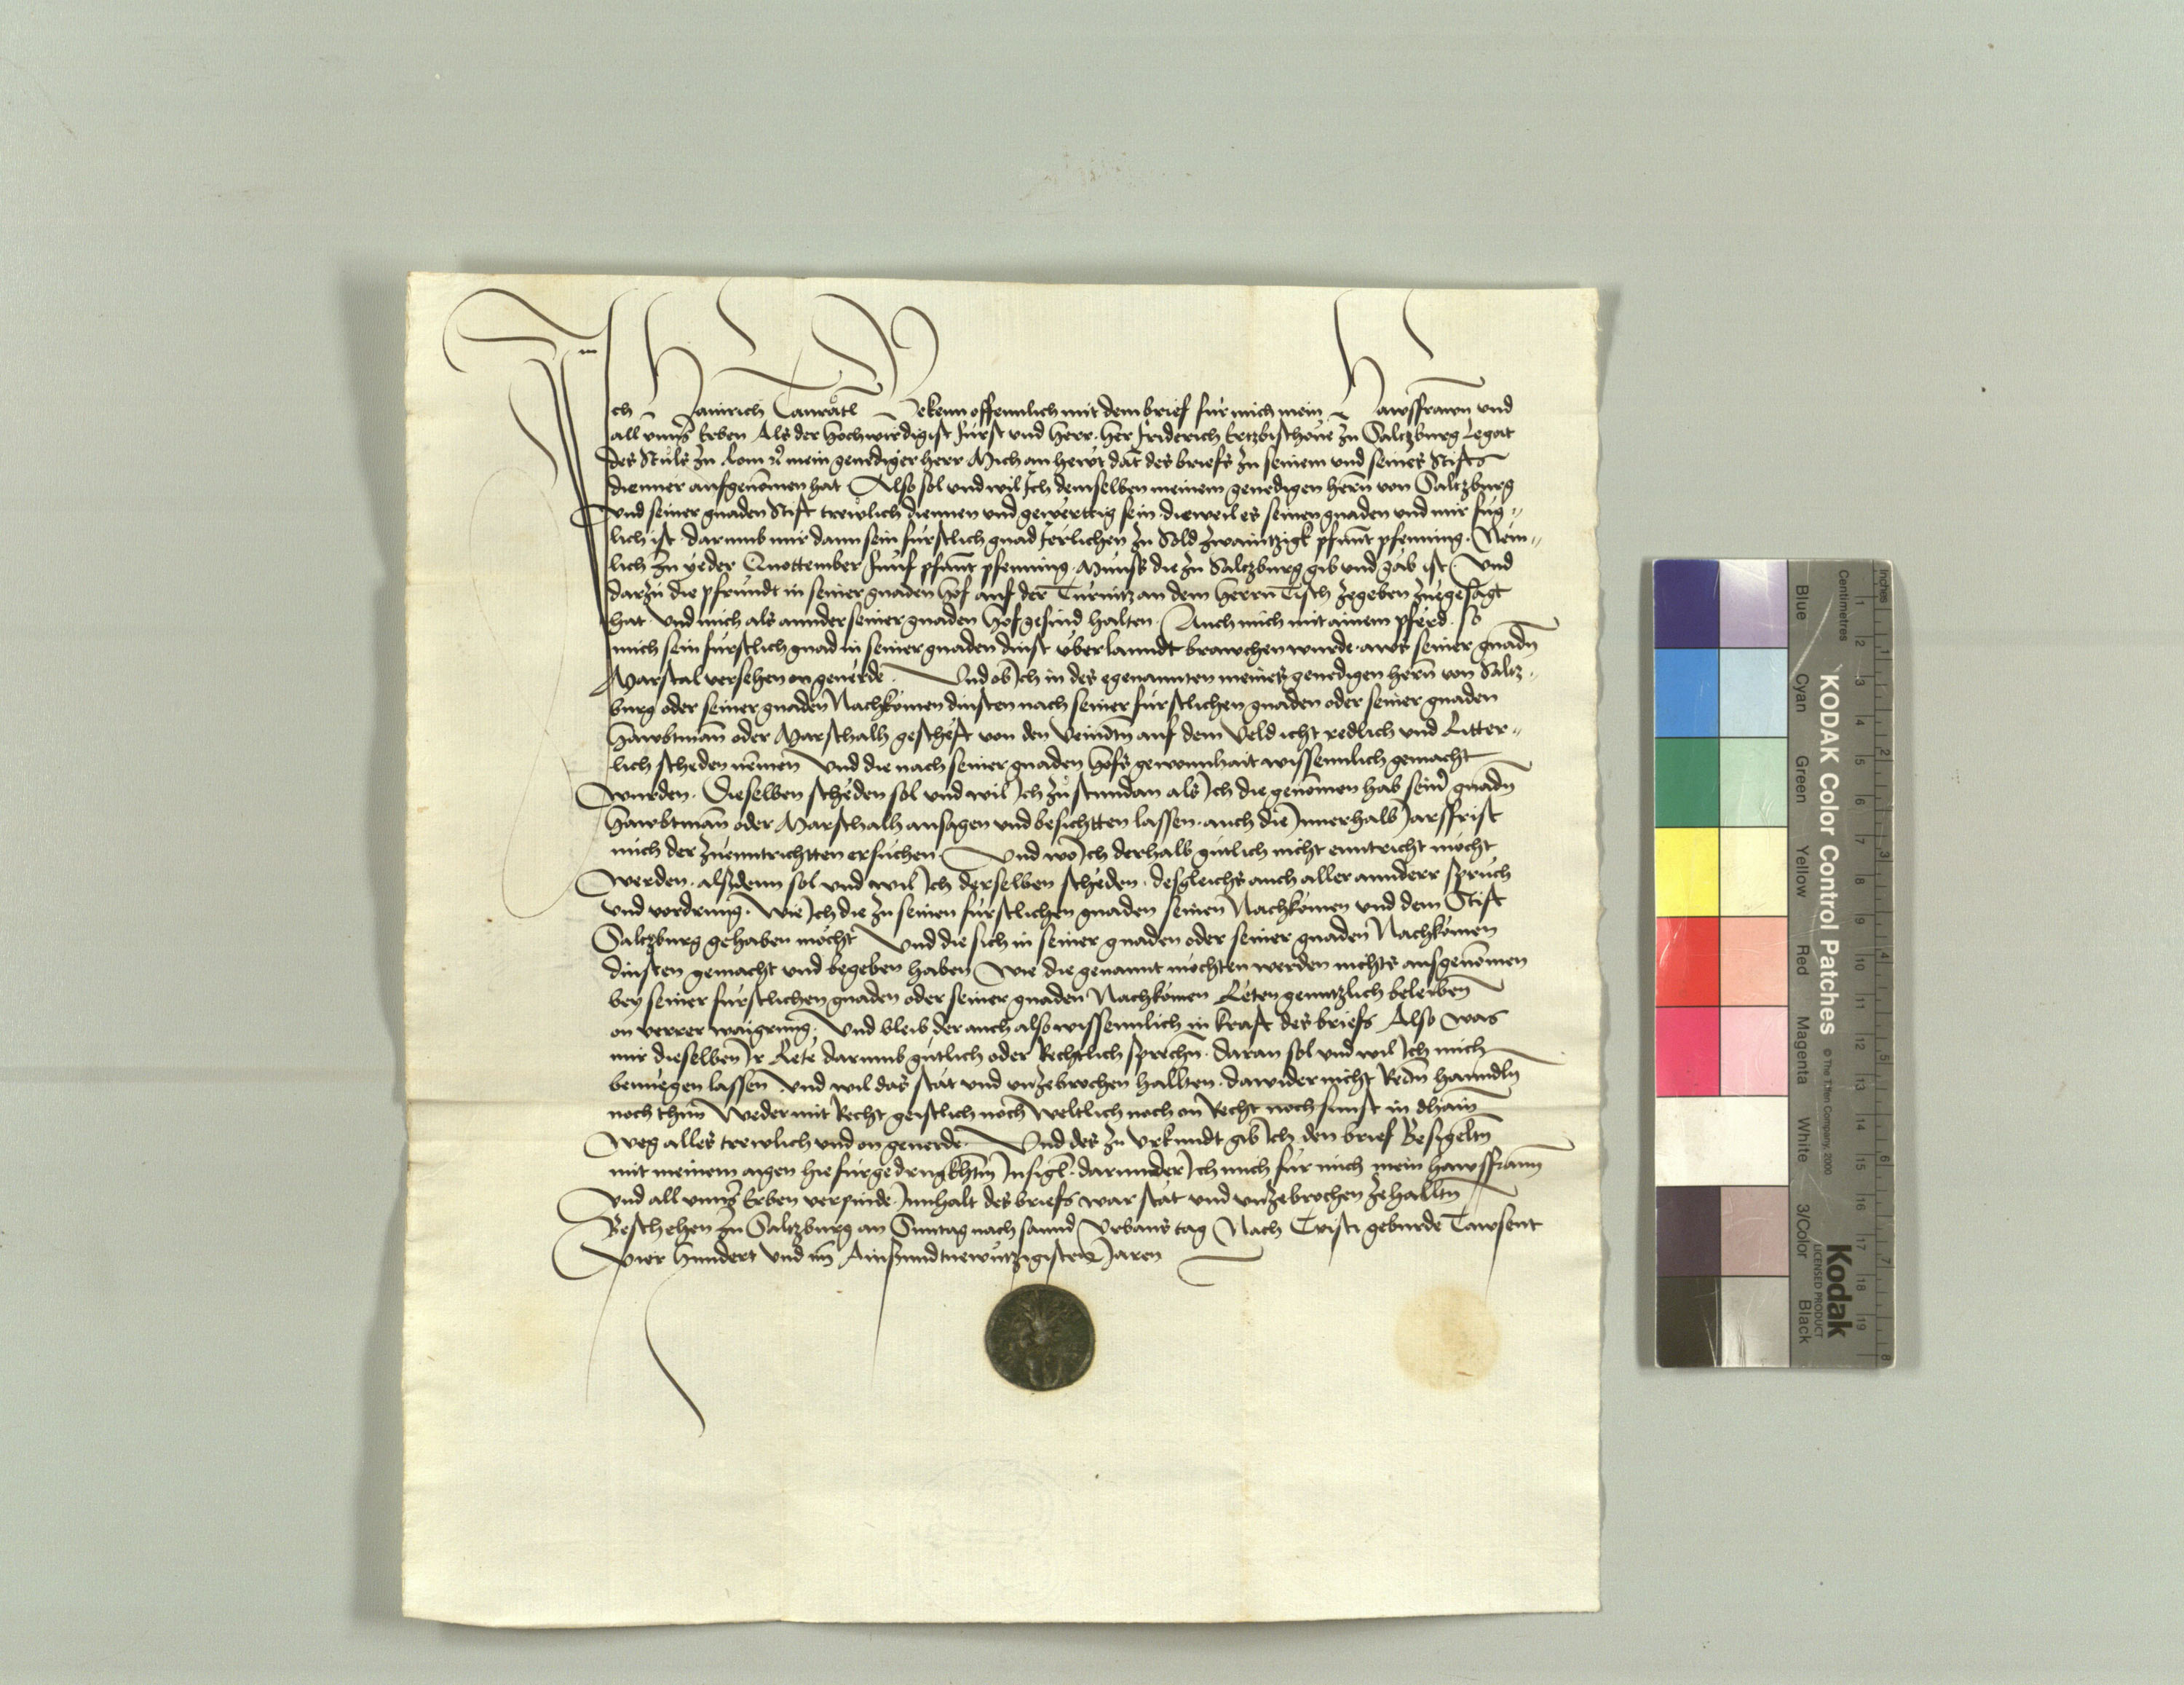 Ich Hainrich Bekenn offennlich mit dem brief für mich mein Hawsfrawn und
all unnser Erben Als der hochwirdigist fürst und herr her Friderich Ertzbischoue zu Saltzburg Legat
des Stuls zu Rom mein genediger herr Mich an hewt dat des briefs zu seinem und seines Stifts
diener aufgenomen hat Also sol und wil Ich demselben meinem genedigen herrn von Saltzburg
und seiner gnaden Stift trewlich diennen und gewerttig sein dieweil es seinen gnaden und mir fug„
lich ist darumb mir dann sein fürstlich gnad Jerlichen zu Sold zwaintzigk pfunt pfenning. Nem„
lich zu yeder Quottember funf pfunt pfenning Munss die zu Saltzburg gib und gab ist Und
darzu die pfrundt in seiner gnaden hof auf der Turnitz an dem herrn Tisch zegeben zuegesagt
hat Und mich als annder seiner gnaden hofgesind halten. Auch mich mit ainem pferd. So
mich sein fürstlich gnad in seiner gnaden dinst uber lanndt brawchen wurde aws seiner gnadn
Marstal versehen on geuerde. Und ob Ich in des egenannten meines genedigen herrn von Saltz„
burg oder seiner gnaden Nachkomen dinsten nach seiner fürstlichen gnaden oder seiner gnaden
hawbtman oder Marschalh gescheft von den Veindtn auf dem Veld icht redlich und Ritter„
lich scheden nemen Und die nach seiner gnaden hofs gewonnhait wissennlich gemacht
wurden. Dieselben scheden sol und wil Ich zustundan als Ich die genomen hab seiner gnadn
hawbtman oder Marschalh ansagen und besichtten lassen. auch die Innerhalb Jarssfrist
mich der zuenntrichtten ersuchen. Und wo Ich derhalb gütlich nicht enntricht mocht
werden. alssdenn sol und wil Ich derselben scheden. desgleichs auch aller annderr spruch
und vordrung. Wie Ich die zu seinen fürstlichen gnaden seinen Nachkomen und dem Stift
Saltzburg gehaben mocht Und die sich in seiner gnaden oder seiner gnaden Nachkomen
dinsten gemacht und begeben haben Wie die genannt mochten werden nichts ausgenomen
bey seiner fürstlichen gnaden oder seiner gnaden Nachkomen Reten genntzlich beleiben
on verrer waigrung. Und bleib der auch also wissennlich in kraft des briefs Also was
mir dieselben Ir Rete darumb gütlich oder Rechtlich sprechn. daran sol und wil Ich mich
benuegen lassen Und wil das stat und unzebrochen hallten. dawider nicht Redn hanndln
noch thun Weder mit Recht geistlich noch Weltlich noch on Recht noch sunst in dhain
Weg alles trewlich und on geuerde. Und des zu Urkundt gib Ich den brief Besigeltn
mit meinem aigen hiefürgedrugkhtm Insigl. darunder Ich mich für mich mein hawsfrawn
Und all unnser Erben verpinde Innhalt des briefs war stat und unzebrochen zehalltn
Beschehen zu Saltzburg an Sunntag nach sannd Urbans tag Nach Cristi geburde Tawsent
Vier hundert Und im Ainssundnewntzigisten Jaren
KODAK Color Control Patches
© The Tiffen Company, 2000
Kodak
LICENSED PRODUCT
Inches
Centimetres
Blue Cyan Green Yellow Red Magenta White 3/Color Black
1 2 3 4 5 6 7 8 9 10 11 12 13 14 15 16 17 18 19
1 2 3 4 5 6 7 8